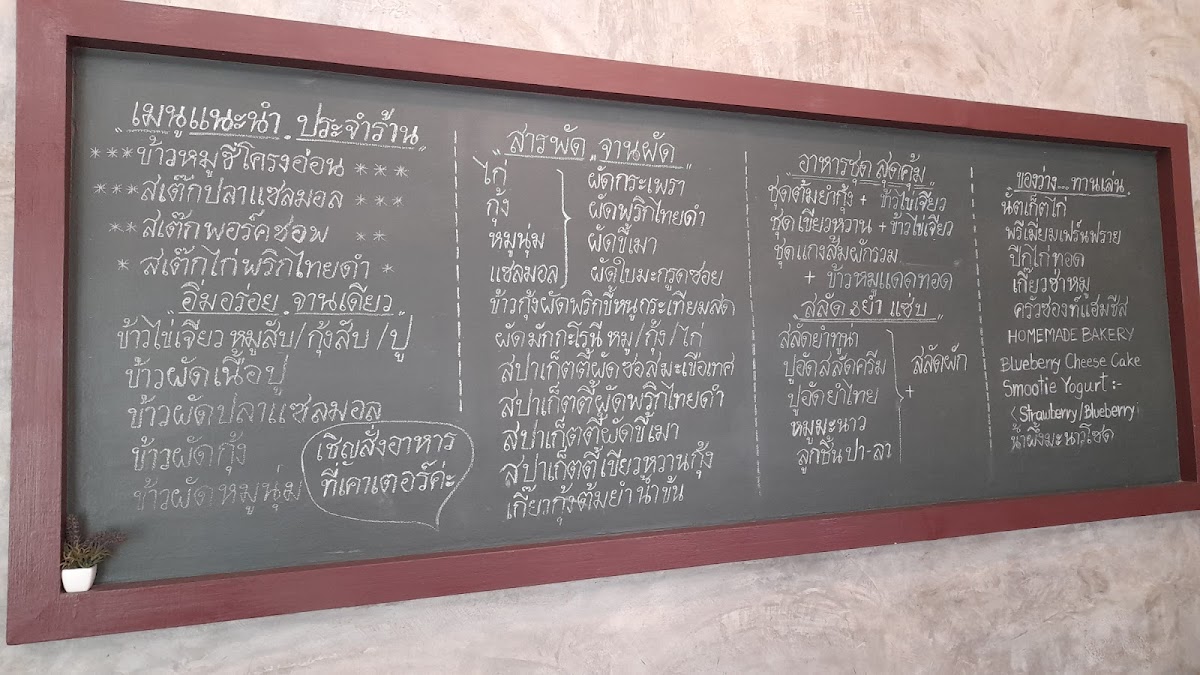 "เมนูแนะนำ . ประจำร้าน"
***ข้าวหมูซี่โครงอ่อน***
***สเต๊กปลาแซลมอล***
**สเต๊กพอร์คชอพ**
*สเต๊กไก่พริกไทยดำ*
"อิ่มอร่อย . จานเดียว"
ข้าวไข่เจียวหมูสับ/กุ้งสับ/ปู
ข้าวผัดเนื้อปู
ข้าวผัดปลาแซลมอล
ข้าวผัดกุ้ง
ข้าวผัดหมูนุ่ม
เชิญสั่งอาหาร
ที่เค้าเตอร์ค่ะ
"สารพัด จานผัด"
ไก่
กุ้ง
หมูนุ่ม
แซลมอล
ผัดกระเพรา
ผัดพริกไทยดำ
ผัดขี้เมา
ผัดใบมะกรูดซอย
ข้าวกุ้งผัดพริกขี้หนูกระเทียมสด
ผัดมักกะโรนี หมู/กุ้ง/ไก่
สปาเก็ตตี้ผัดซอสมะเขือเทศ
สปาเก็ตตี้ผัดพริกไทยดำ
สปาเก็ตตี้ผัดขี้เมา
สปาเก็ตตี้เขียวหวานกุ้ง
เกี๊ยวกุ้งต้มยำน้ำข้น
อาหารชุด สุดคุ้ม
ชุดต้มยำกุ้ง + ข้าวไข่เจียว
ชุดเขียวหวาน + ข้าวไข่เจียว
ชุดแกงส้มผักรวม
+ ข้าวหมูแดดทอด
"สลัด & ยำ แซ่บ"
สลัดยำทูน่า
ปูอัดสลัดครีม
ปูอัดยำไทย
หมูมะนาว
ลูกชิ้นปา-ลา
สลัดผัก
+
ของว่าง...ทานเล่น
นักเก็ตไก่
พรีเมี่ยมเฟร้นฟราย
ปีกไก่ทอด
เกี๊ยวซ่าหมู
ครัวซองท์แฮมชีส
HOMEMADE BAKERY
Blueberry Cheese Cake
Smootie Yogurt :-
(Strawberry/Blueberry)
น้ำผึ้งมะนาวโซดา